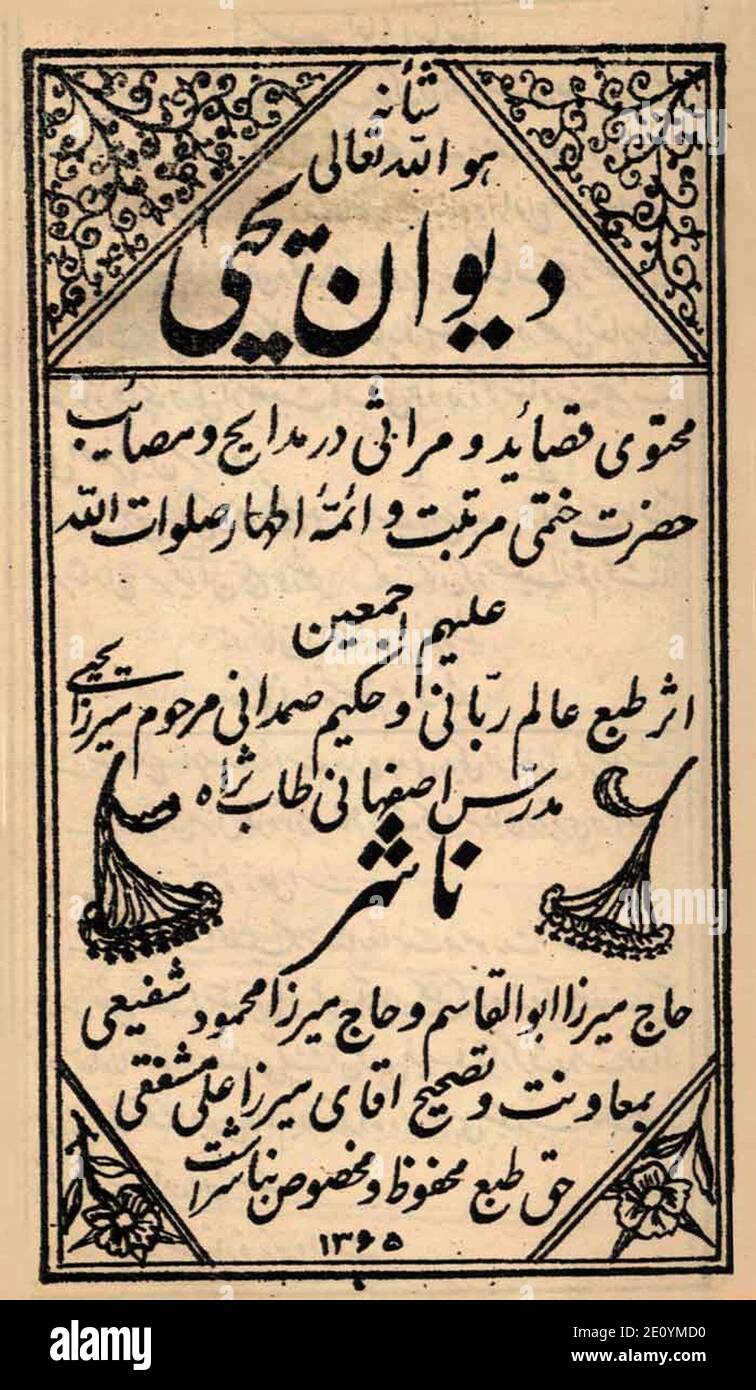 هو الله تعالی شأنه
دیوان یحیی
محتوی قصائد و مراثی در مدایح و مصائب
حضرت ختمی مرتبت و ائمهٔ اطهار صلوات الله
علیهم اجمعین
اثر طبع عالم ربّانی و حکیم صمدانی مرحوم میرزا یحیی
مدرّس اصفهانی طاب ثراه
ناشر
حاج میرزا ابوالقاسم و حاج میرزا محمود شفیعی
بمعاونت و تصحیح اقای میرزا علی مشفقی
حق طبع محفوظ و مخصوص بناشر است
۱۳۶۵
alamy
alamy
Image ID: 2E0YMD0
www.alamy.com